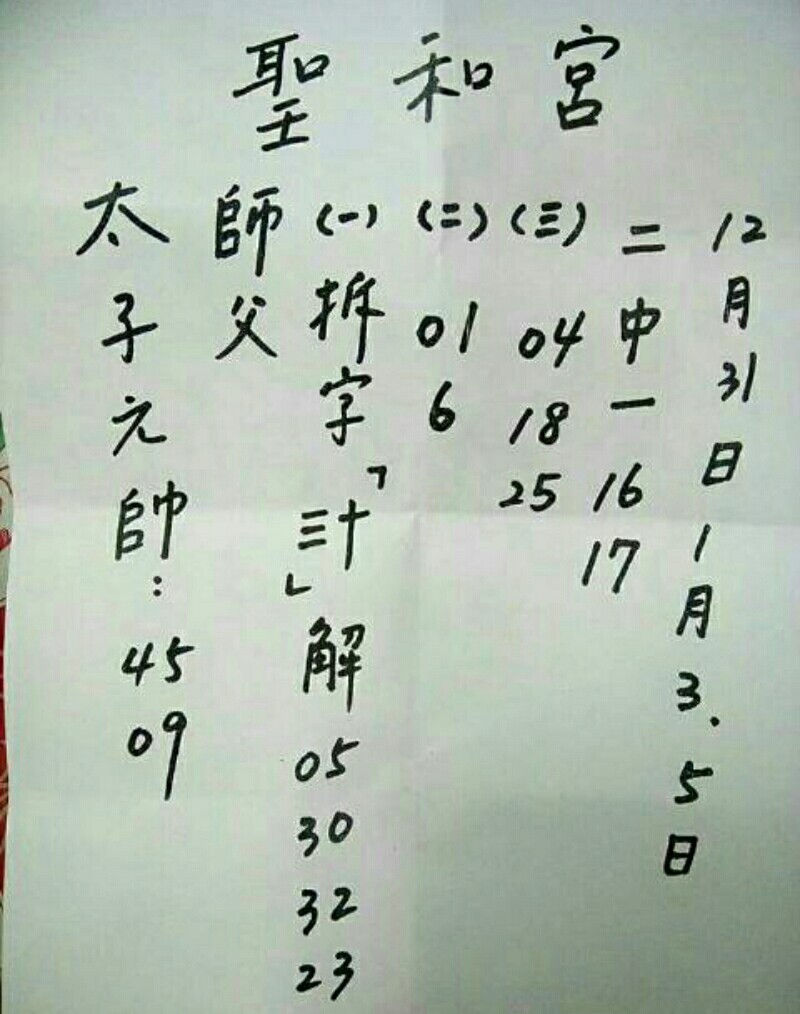 聖和宮
太子元帥：4509
師父
(一)拆字「三十」解05303223
(二)016
(三)041825
二中一1617
12月31日1月3.5日